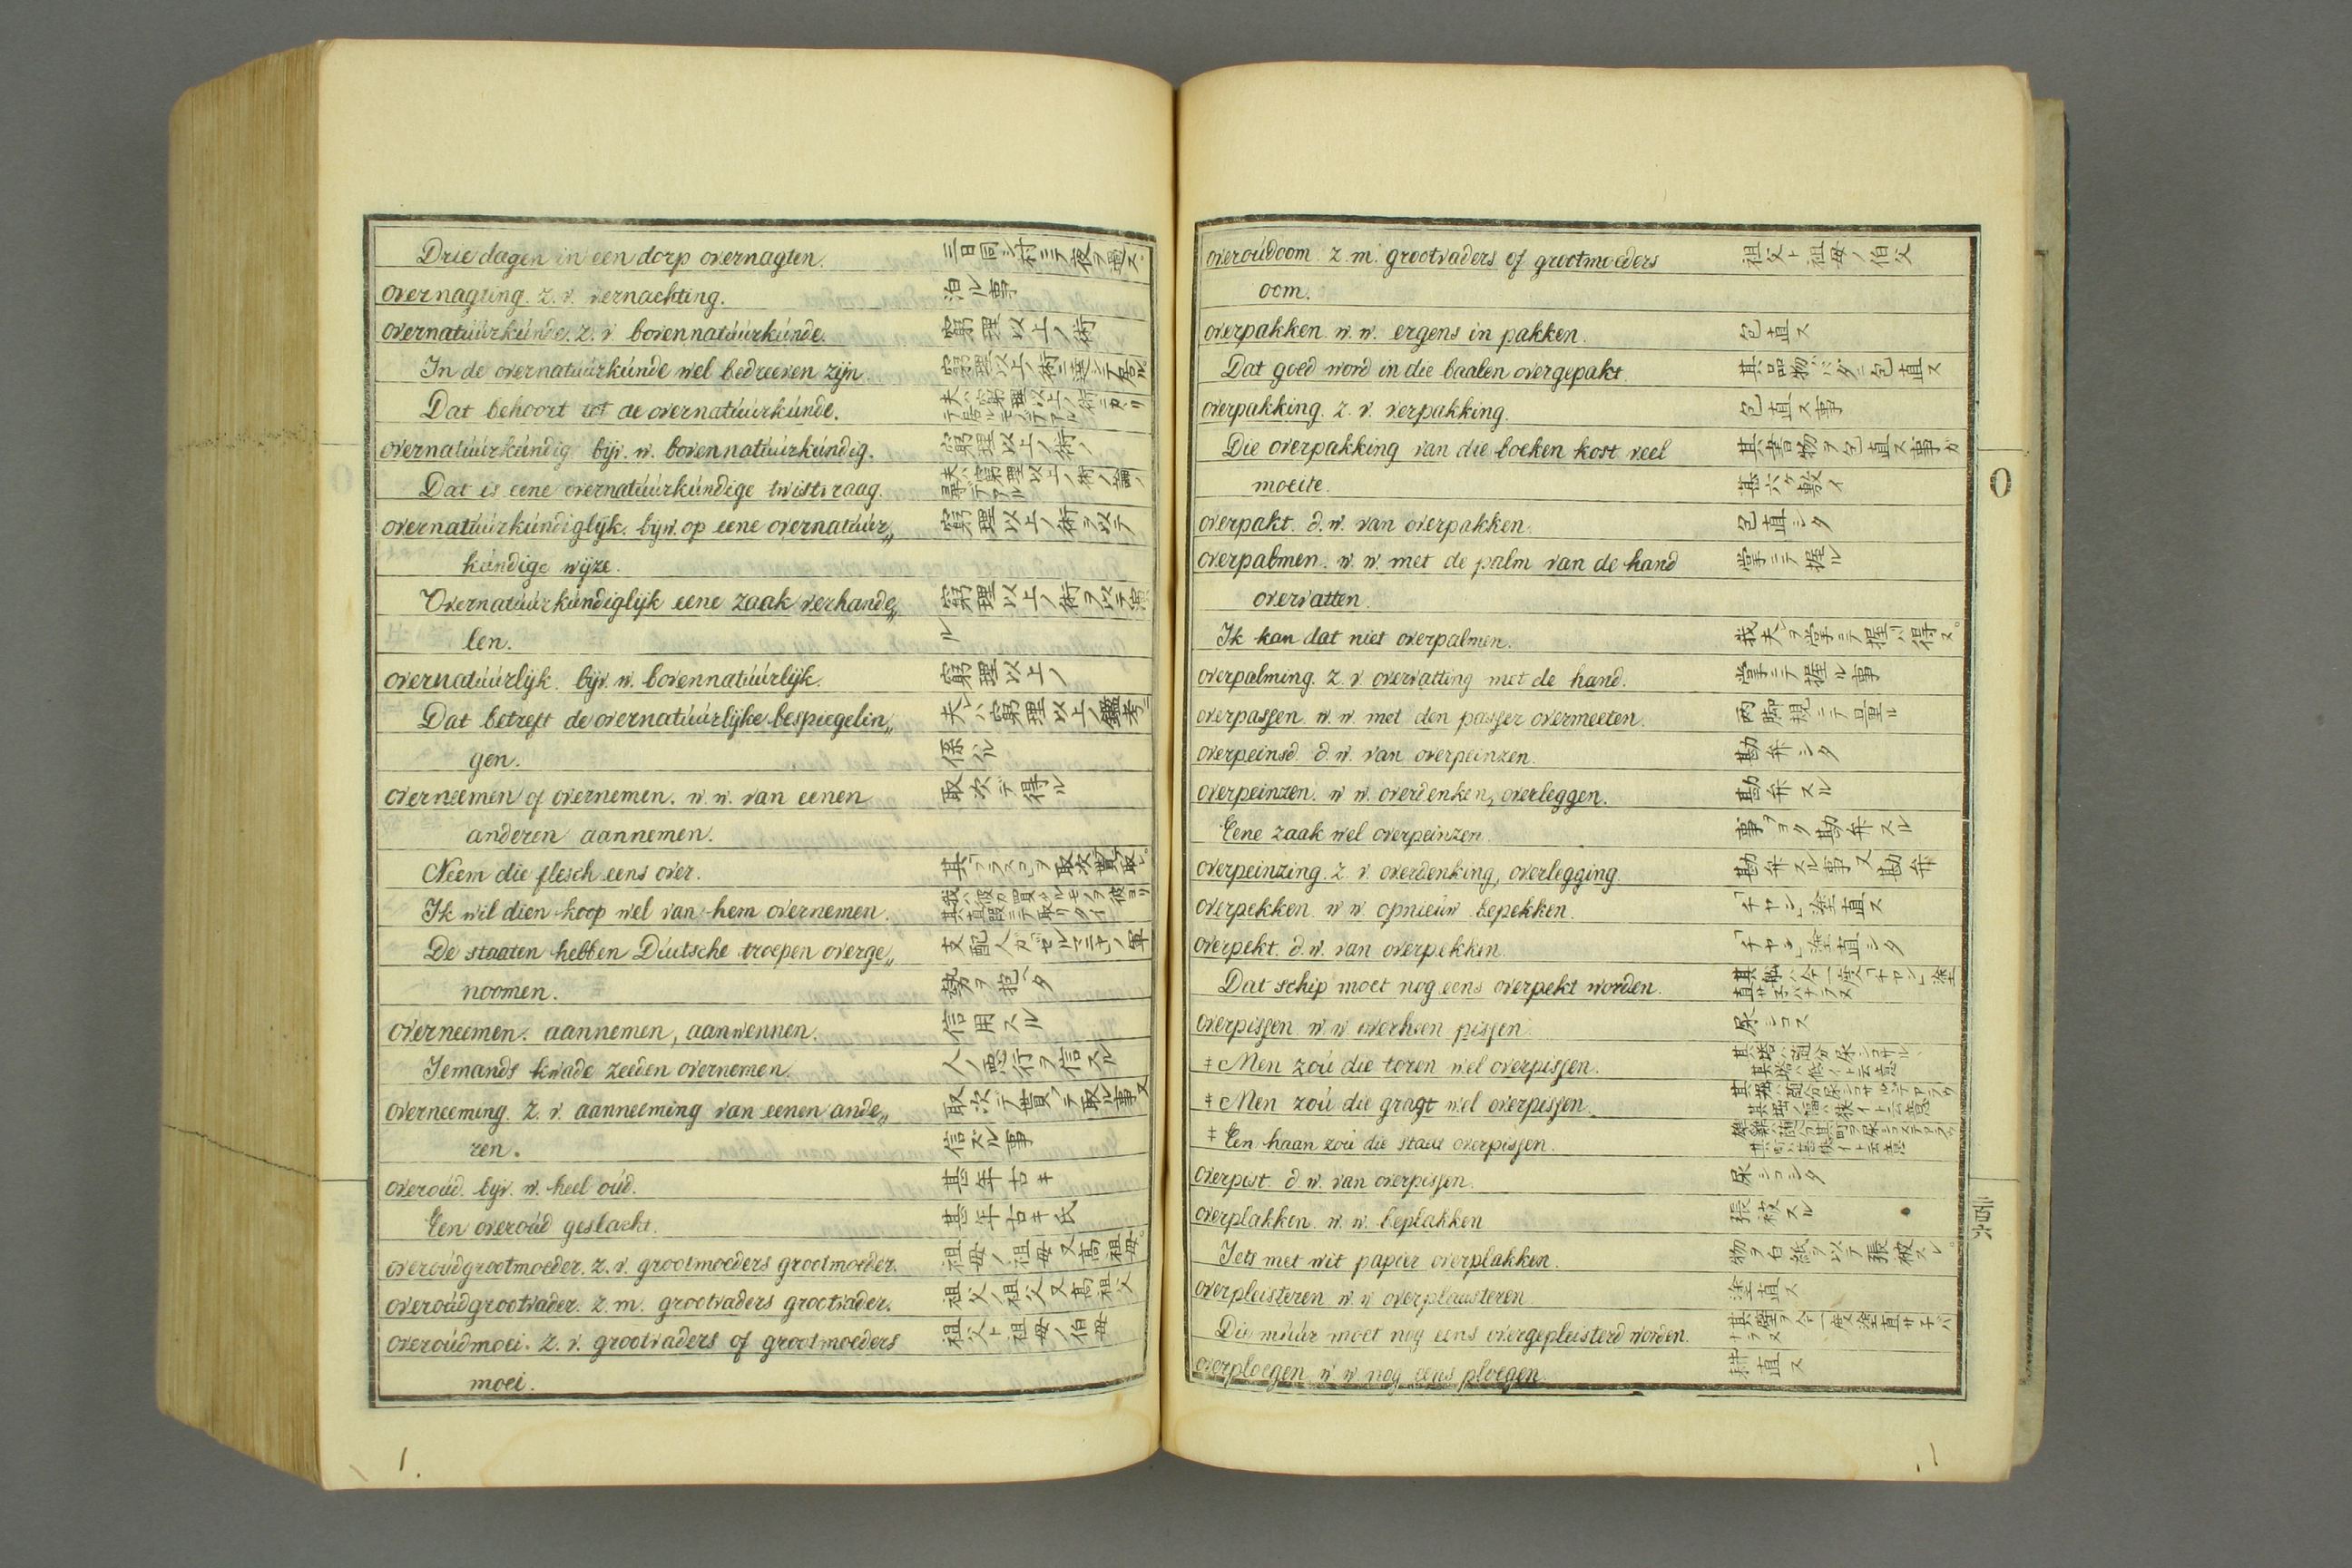 Drie dagen in een dorp overnagten. 三日同シ村ニテ夜ヲ
overnagting. z. v. vernachting. 泊ル事
overnatúúrkúnde. z. v. bovennatúúrkúnde. 窮理以上ノ術
In de overnatúúrkúnde wel bedreeven zijn. 窮理以上ノ術ニ達シテ居ル
Dat behoort tot de overnatúúrkúnde.
夫ハ窮理以上ノ術ニ
overnatúúrkúndig bijv. w. bovennatúúrkúndig. 窮理以上ノ術ノ
Dat is eene overnatúúrkúndige twistvraag.
夫ハ窮理以上ノ術ノ
overnatúúrkúndiglijk. bijw. op eene overnatúúr„ 窮理以上ノ術ヲ以テ
kúndige wijze.
Overnatúúrkúndiglijk eene zaak verhande„ 窮理以上ノ術ヲ以テ
len. ル
overnatúúrlijk. bijv. w. bovennatúúrlijk. 窮理以上ノ
Dat betreft de overnatúúrlijke bespiegelin„ 夫ハ窮理以上ノ鑑考ニ
gen. 係ル
overneemen of overnemen. w. w. van eenen 取次テ得ル
anderen aannemen.
Neem die flesch eens over. 其「フラスコ」ヲ取次
Ik wil dien koop wel van hem overnemen.
De staaten hebben Duitsche troepen overge„ 支配人ガ
noomen. 勢ヲ抱ヘタ
overneemen. aannemen, aanwennen. 信用スル
Iemands kwade zeeden overnemen. 人ノ悪行ヲ信スル
overneeming. z. v. aanneeming van eenen ande„ 取次テ貰フテ取ル事又
ren. 信ズル事
overoúd. bijv. w. heel oúd. 甚年古キ
Een overoúd geslacht. 甚年古キ氏
overoúdgrootmoeder. z. v. grootmoeders grootmoeder. 祖母ノ祖母又高祖母。
overoúdgrootvader. z. m. grootvaders grootvader. 祖父ノ祖父又高祖父
overoúdmoei. z. v. grootvaders of grootmoeders 祖父ト祖母ノ伯母
moei.
1.
overoúdoom. z. m. grootvaders of grootmoeders 祖父ト祖母ノ伯父
oom.
overpakken. w. w. ergens in pakken. 包直ス
Dat goed word in die baalen overgepakt. 其品物ハ 包直ス
overpakking. z. v. verpakking. 包直ス事
Die overpakking van die boeken kost veel 其書物ヲ包直ス事ガ
moeite. 甚六ケ敷イ
O
overpakt. d. w. van overpakken. 包直シタ
overpalmen. w. w. met de palm van de hand 掌ニテ握ル
overvatten.
Ik kan dat niet overpalmen. 我夫ヲ掌ニテ握リ得ズ。
overpalming. z. v. overvatting met de hand. 掌ニテ握ル事
overpassen. w. w. met den passer overmeeten. 両脚規ニテ量ル
overpeinsd. d. w. van overpeinzen. 勘弁シタ
overpeinzen. w. w. overdenken, overleggen. 勘弁スル
Eene zaak wel overpeinzen. 事ヲヨク勘弁スル
overpeinzing. z. v. overdenking, overlegging. 勘弁スル事又勘弁
overpekken. w. w. opnieúw bepekken. 「チヤン」塗直ス
overpekt. d. w. van overpekken. 「チヤン」塗直シタ
Dat schip moet nog eens overpekt worden. 其船ハ今一度「チヤン」塗
直サ子バナラヌ
overpissen. w. w. overheen pissen. 尿シコス
‡ Men zoú die toren wel overpissen.
‡ Men zoú die gragt wel overpissen.
‡ Een haan zoú die stadt overpissen.
overpist. d. w. van overpissen. 尿シコシタ
overplakken. w. w. beplakken 張被スル
Iets met wit papier overplakken. 物ヲ白紙ヲ以テ張被スル。
overpleisteren. w. w. overplausteren. 塗直ス
Die múúr moet nog eens overgepleisterd worden. 其壁ヲ今一度塗直サ子バ
ナラヌ
overploegen. w. w. nog eens ploegen. 耕直ス